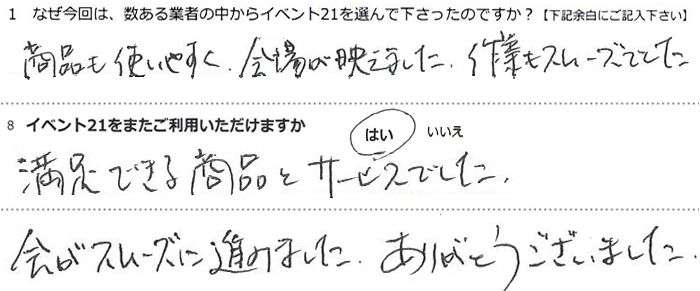 1 なぜ今回は、数ある業者の中からイベント21を選んで下さったのですか？【下記余白にご記入下さい】
商品も使いやすく、会場が映えました。作業もスムーズででした
8 イベント21をまたご利用いただけますか はい いいえ
満足できる商品とサービスでした。
会がスムーズに進めました。ありがとうございました。